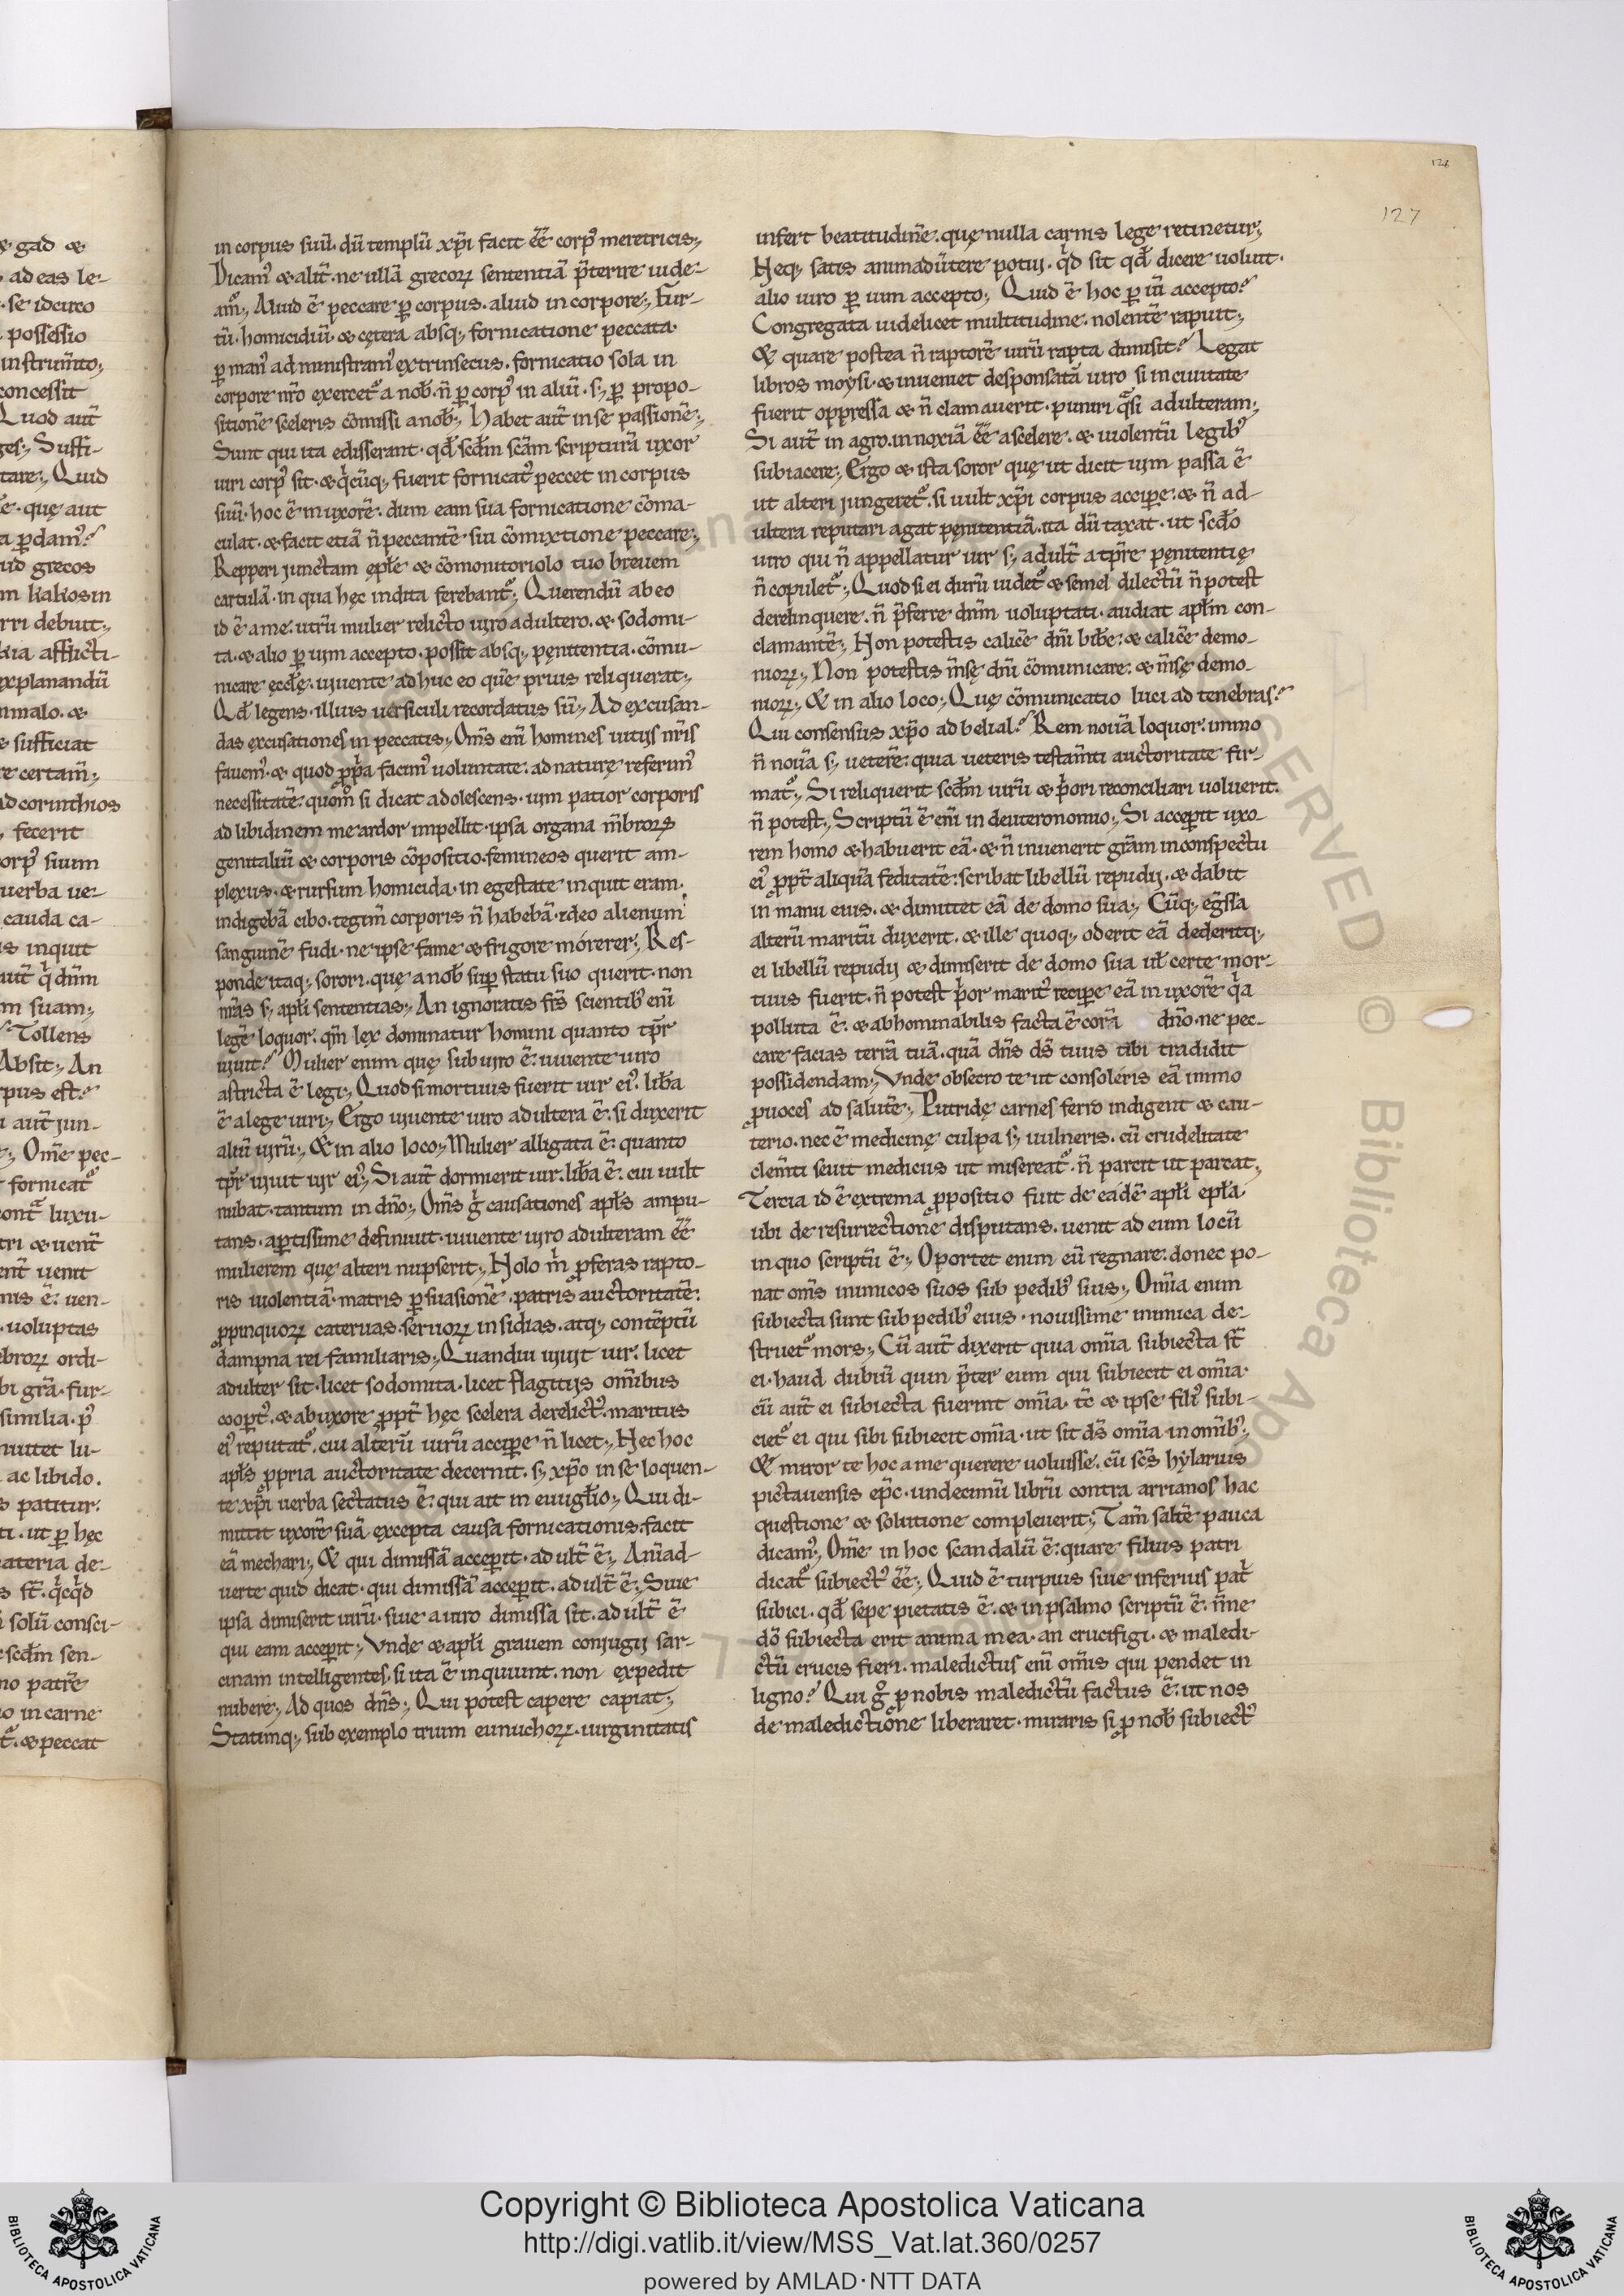 127
in corpus suũ. dũ templũ xp̃i facit eẽ corpꝰ meretricis;
Dicamꝰ & alit̃. ne ullã grecoꝝ sententiã p̃terire uide-
am᷑; Aliud ẽ peccare ꝑ corpus. aliud in corpore; Fur-
tũ. homicidiũ. & cętera absq; fornicatione peccata.
ꝑ manꝰ administramꝰ extrinsecus. fornicatio sola in
corpore nr̃o exercet᷑ a nob̄. ñ ꝑ corpꝰ in aliũ. s; ꝑ propo-
sitionẽ sceleris cõmissi a nob̄; Habet aut̃ in se passionẽ;
Sunt qui ita edisserant. qđ scđm scãm scripturã uxor
uiri corpꝰ sit. & q̊cũq; fuerit fornicatꝰ peccet in corpus
suũ. hoc ẽ in uxorẽ. dum eam sua fornicatione cõma-
culat. & facit etiã ñ peccantẽ sui cõmixtione peccare;
Repperi junctam ępłę & cõmonitoriolo tuo breuem
cartulã. in qua hęc indita ferebant᷑; Querendũ ab eo
id ẽ a me. utrũ mulier relicto uiro adultero. & sodomi-
ta. & alio ꝑ uim accepto. possit absq; pęnitentia. cõmu-
nicare ęccłę. uiuente adhuc eo quẽ prius reliquerat;
Qđ legens. illius uersiculi recordatus sũ; Ad excusan-
das excusationes in peccatis; Om̃s eni᷑ homines uitijs nr̃is
fauemꝰ. & quod ꝓp̃a facimꝰ uoluntate. ad naturę referimꝰ
necessitatẽ. quom̊ si dicat adolescens. uim patior corporis
ad libidinem me ardor impellit. ipsa organa m̃broꝝ
genitaliũ & corporis cõpositio. femineos querit am-
plexus. & rursum homicida. in egestate inquit eram.
indigebã cibo. tegim̃ corporis ñ habebã. ideo alienum
sanguinẽ fudi. ne ipse fame & frigore morerer; Res-
ponde itaq; sorori. quę a nob̄ suꝑ statu suo querit. non
nr̃as s; apłi sententias; An ignoratis fr̃s scientibꝰ eni᷑
legẽ loquor. qm̃ lex dominatur homini quanto tp̃r
uiuit? Mulier enim quę sub uiro ẽ. uiuente uiro
astricta ẽ legi; Quod si mortuus fuerit uir eiꝰ. lib̄a
ẽ a lege uiri; Ergo uiuente uiro adultera ẽ. si duxerit
aliũ uirũ; & in alio loco; Mulier alligata ẽ. quanto
tp̃r uiuit uir eiꝰ; Si aut̃ dormierit uir. lib̄a ẽ. cui uult
nubat. tantum in dño; Om̃s g̊ causationes apłs ampu-
tans. aꝑtissime definiuit. uiuente uiro adulteram eẽ
mulierem quę alteri nupserit; Nolo m̊ ꝓferas rapto-
ris uiolentiã. matris ꝑsuasionẽ. patris auctoritatẽ.
ꝓpinquoꝝ cateruas. seruoꝝ insidias. atq; contẽptũ
dampna rei familiaris; Quandiu uiuit uir. licet
adulter sit. licet sodomita. licet flagitijs om̃ibus
cooꝑtꝰ. & ab uxore ꝓpt̃ hęc scelera derelictꝰ. maritus
eiꝰ reputat᷑. cui alterũ uirũ acciꝑe ñ licet; Nec hoc
apłs ꝓpria auctoritate decernit. s; xp̃o in se loquen-
te xp̃i uerba sectatus ẽ. qui ait in euugłio; Qui di-
mittit uxorẽ suã excepta causa fornicationis. facit
eã mechari; & qui dimissã acceꝑit. adult̃ ẽ; Anĩad-
uerte quid dicat. qui dimissã acceꝑit. adult̃ ẽ; Siue
ipsa dimiserit uirũ. siue a uiro dimissa sit. adult̃ ẽ
qui eam acceꝑit; Vnde & apłi grauem conjugij sar-
cinam intelligentes. si ita ẽ inquiunt. non expedit
nubere; Ad quos dñs; Qui potest capere capiat;
Statimq; sub exemplo trium eunuchoꝝ. uirginitatis
infert beatitudinẽ. quę nulla carnis lege retinetur;
Neq; satis animaduertere potui. q̊d sit qđ dicere uoluit.
alio uiro ꝑ uim accepto; Quid ẽ hoc ꝑ uĩ accepto?
Congregata uidelicet multitudine. nolentẽ rapuit;
& quare postea ñ raptorẽ uirũ rapta dimisit? Legat
libros moysi. & inueniet desponsatã uiro si in ciuitate
fuerit oppressa & ñ clamauerit. puniri q̃si adulteram;
Si aut̃ in agro. innoxiã eẽ a scelere. & uiolentũ legibꝰ
subiacere; Ergo & ista soror quę ut dicit uim passa ẽ
ut alteri jungeret᷑. si uult xp̃i corpus acciꝑe. & ñ ad-
ultera reputari agat pęnitentiã. ita dũtaxat. ut scđo
uiro qui ñ appellatur uir s; adult̃ a tp̃re pęnitentię
ñ copulet᷑; Quod si ei durũ uidet᷑ & semel dilectũ ñ potest
derelinquere. ñ p̃ferre dñm uoluptati. audiat apłm con-
clamantẽ; Non potestis calicẽ dñi bib̄e. & calicẽ demo-
nioꝝ; Non potestis m̃sę dñi cõmunicare. & m̃sę demo-
nioꝝ; & in alio loco; Quę cõmunicatio luci ad tenebras?
Qui consensus xp̃o ad belial? Rem nouã loquor. immo
ñ nouã s; ueterẽ. quia ueteris testam̃ti auctoritate fir-
mat᷑; Si reliquerit scđm uirũ & p̊ori reconciliari uoluerit.
ñ potest; Scriptũ ẽ eni᷑ in deuteronomio; Si acceꝑit uxo-
rem homo & habuerit eã. & ñ inuenerit gr̃am in conspectu
eiꝰ ꝓpt̃ aliquã feditatẽ. scribat libellũ repudij. & dabit
in manu eius. & dimittet eã de domo sua; Cũq; eg̃ssa
alterũ maritũ duxerit. & ille quoq; oderit eã dederitq;
ei libellũ repudij & dimiserit de domo sua uł certe mor-
tuus fuerit. ñ potest p̊or maritꝰ reciꝑe eã in uxorẽ q̊a
polluta ẽ. & abhominabilis facta ẽ corã dño. ne pec-
care facias terrã tuã. quã dñs ds̃ tuus tibi tradidit
possidendam; Vnde obsecro te ut consoleris eã immo
ꝓuoces ad salutẽ; Putridę carnes ferro indigent & cau-
terio. nec ẽ medicinę culpa s; uulneris. cũ crudelitate
clem̃ti seuit medicus ut misereat᷑. ñ parcit ut parcat;
Tercia id ẽ extrema ꝓpositio fuit de eadẽ apłi epła.
ubi de resurrectione disputans. uenit ad eum locũ
in quo scriptũ ẽ; Oportet enim eũ regnare. donec po-
nat om̃s inimicos suos sub pedibꝰ suis; Om̃ia enim
subiecta sunt sub pedibꝰ eius. nouissime inimica de-
struet᷑ mors; Cũ aut̃ dixerit quia om̃ia subiecta st̃
ei. haud dubiũ quin p̃ter eum qui subiecit ei om̃ia.
cũ aut̃ ei subiecta fuerint om̃ia. tc̃ & ipse filiꝰ subi-
ciet᷑ ei qui sibi subiecit om̃ia. ut sit ds̃ om̃ia in om̃ibꝰ;
& miror te hoc a me querere uoluisse. cũ scs̃ hylarius
pictauensis ep̃c. undecimũ librũ contra arrianos hac
questione & solutione compleuerit; Tam̃ saltẽ pauca
dicamꝰ; Om̃e in hoc scandalũ ẽ. quare filius patri
dicat᷑ subiectꝰ eẽ; Quid ẽ turpius siue inferius pat̊
subici. qđ sepe pietatis ẽ. & in psalmo scriptũ ẽ. ñne
dõ subiecta erit anima mea. an crucifigi. & maledi-
ctũ crucis fieri. maledictus eni᷑ om̃is qui pendet in
ligno? Qui g̊ ꝓ nobis maledictũ factus ẽ. ut nos
de maledictione liberaret. miraris si ꝓ nob̄ subiectꝰ
Copyright © Biblioteca Apostolica Vaticana
http://digi.vatlib.it/view/MSS_Vat.lat.360/0257
powered by AMLAD·NTT DATA
BIBLIOTECA APOSTOLICA VATICANA
BIBLIOTECA APOSTOLICA VATICANA